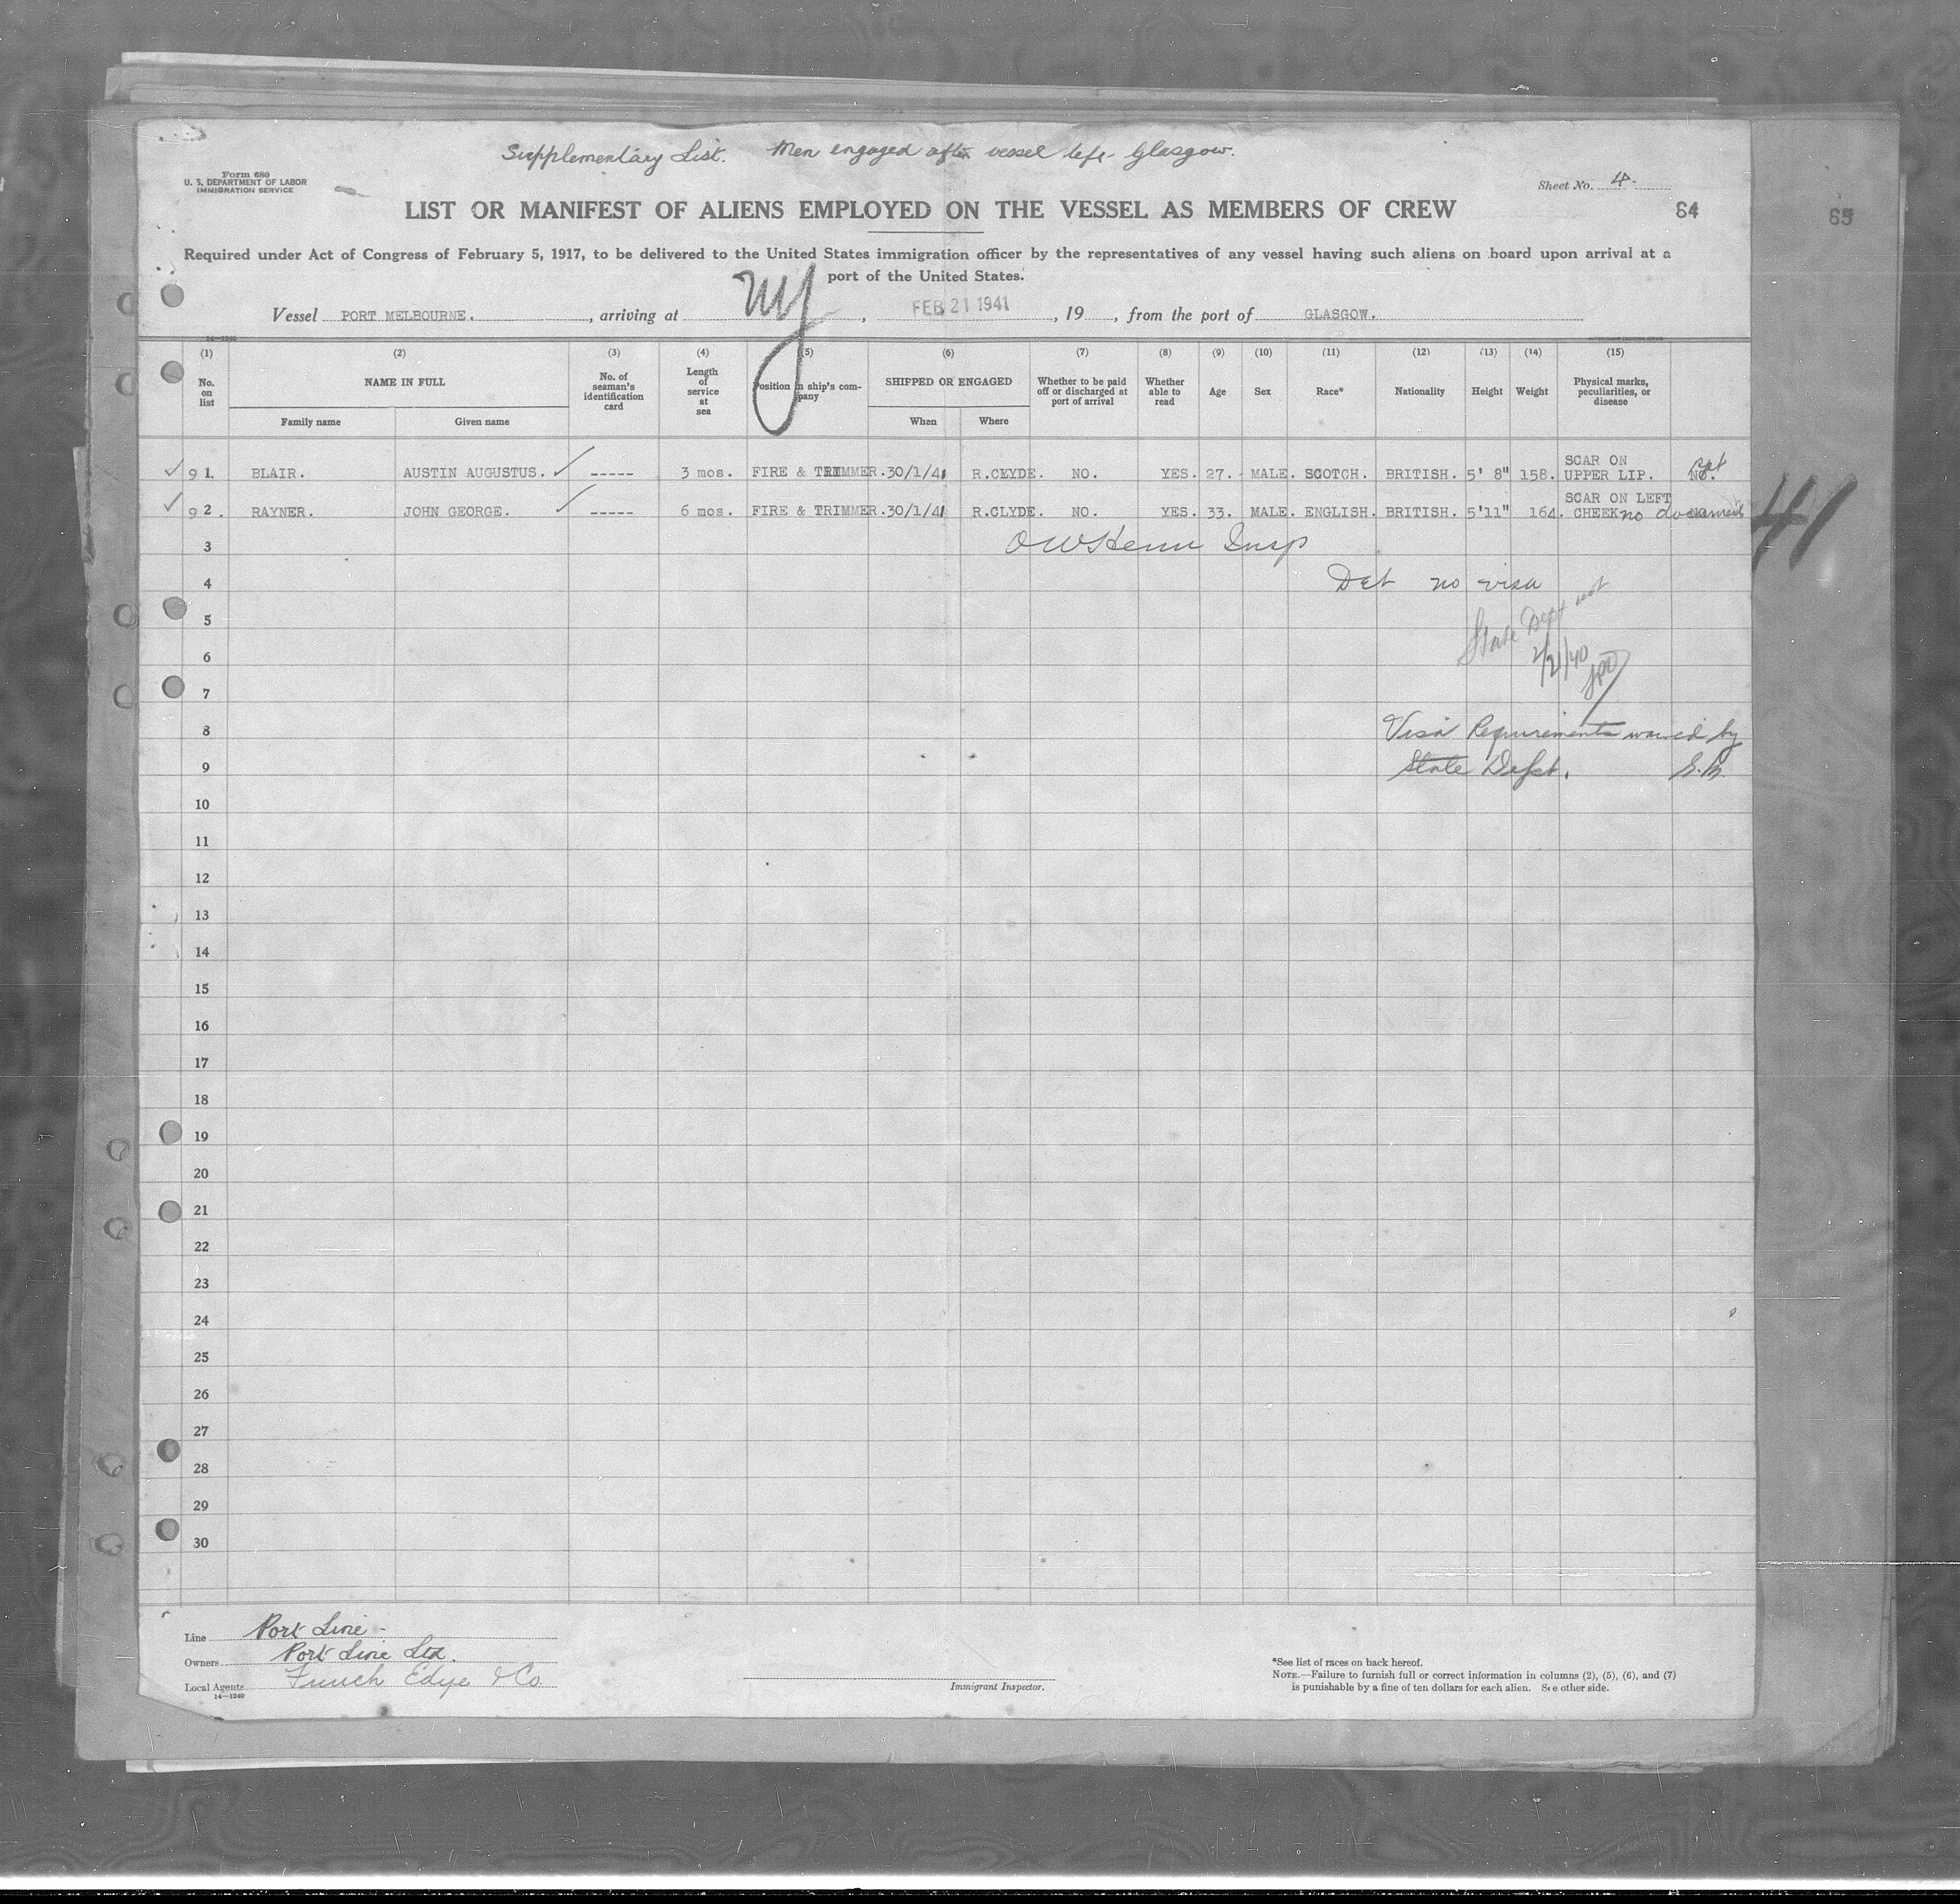 Supplementary List. Men engaged after vessel left Glasgow.
Form 680
U. S. DEPARTMENT OF LABOR
IMMIGRATION SERVICE
Sheet No. 4.
LIST OR MANIFEST OF ALIENS EMPLOYED ON THE VESSEL AS MEMBERS OF CREW
64
65
Required under Act of Congress of February 5, 1917, to be delivered to the United States immigration officer by the representatives of any vessel having such aliens on board upon arrival at a
port of the United States.
Vessel PORT MELBOURNE. , arriving at NY , FEB 21 1941 , 19 , from the port of GLASGOW.
(1) (2) (3) (4) (5) (6) (7) (8) (9) (10) (11) (12) (13) (14) (15)
No. on list NAME IN FULL Family name Given name No. of seaman's identification card Length of service at sea Position in ship's company SHIPPED OR ENGAGED When Where Whether to be paid off or discharged at port of arrival Whether able to read Age Sex Race* Nationality Height Weight Physical marks, peculiarities, or disease
9 1. BLAIR. AUSTIN AUGUSTUS. ----- 3 mos. FIRE & TRIMMER. 30/1/41 R.CLYDE. NO. YES. 27. MALE. SCOTCH. BRITISH. 5' 8" 158. SCAR ON UPPER LIP. NO.
9 2. RAYNER. JOHN GEORGE. ----- 6 mos. FIRE & TRIMMER. 30/1/41 R.CLYDE. NO. YES. 33. MALE. ENGLISH. BRITISH. 5'11" 164. SCAR ON LEFT CHEEK no documents
41
3 Insp
4 Det no visa
5 State Dept not
6 2/21/40
7
8 Visa Requirements waived by
9 State Dept.
10
11
12
13
14
15
16
17
18
19
20
21
22
23
24
25
26
27
28
29
30
Line Port Line -
Owners Port Line Ltd.
Local Agents Funch Edye & Co
14—1240
Immigrant Inspector.
*See list of races on back hereof.
NOTE.—Failure to furnish full or correct information in columns (2), (5), (6), and (7)
is punishable by a fine of ten dollars for each alien. See other side.